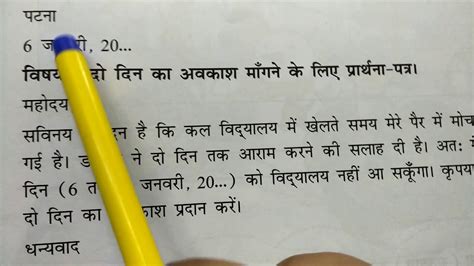 पटना
6 ज री, 20...
विषय दो दिन का अवकाश माँगने के लिए प्रार्थना-पत्र।
महोदय
सविनय दन है कि कल विद्यालय में खेलते समय मेरे पैर में मोच
गई है। ड ने दो दिन तक आराम करने की सलाह दी है। अतः
दिन (6 त जनवरी, 20...) को विद्यालय नहीं आ सकूँगा। कृपय
दो दिन का काश प्रदान करें।
धन्यवाद